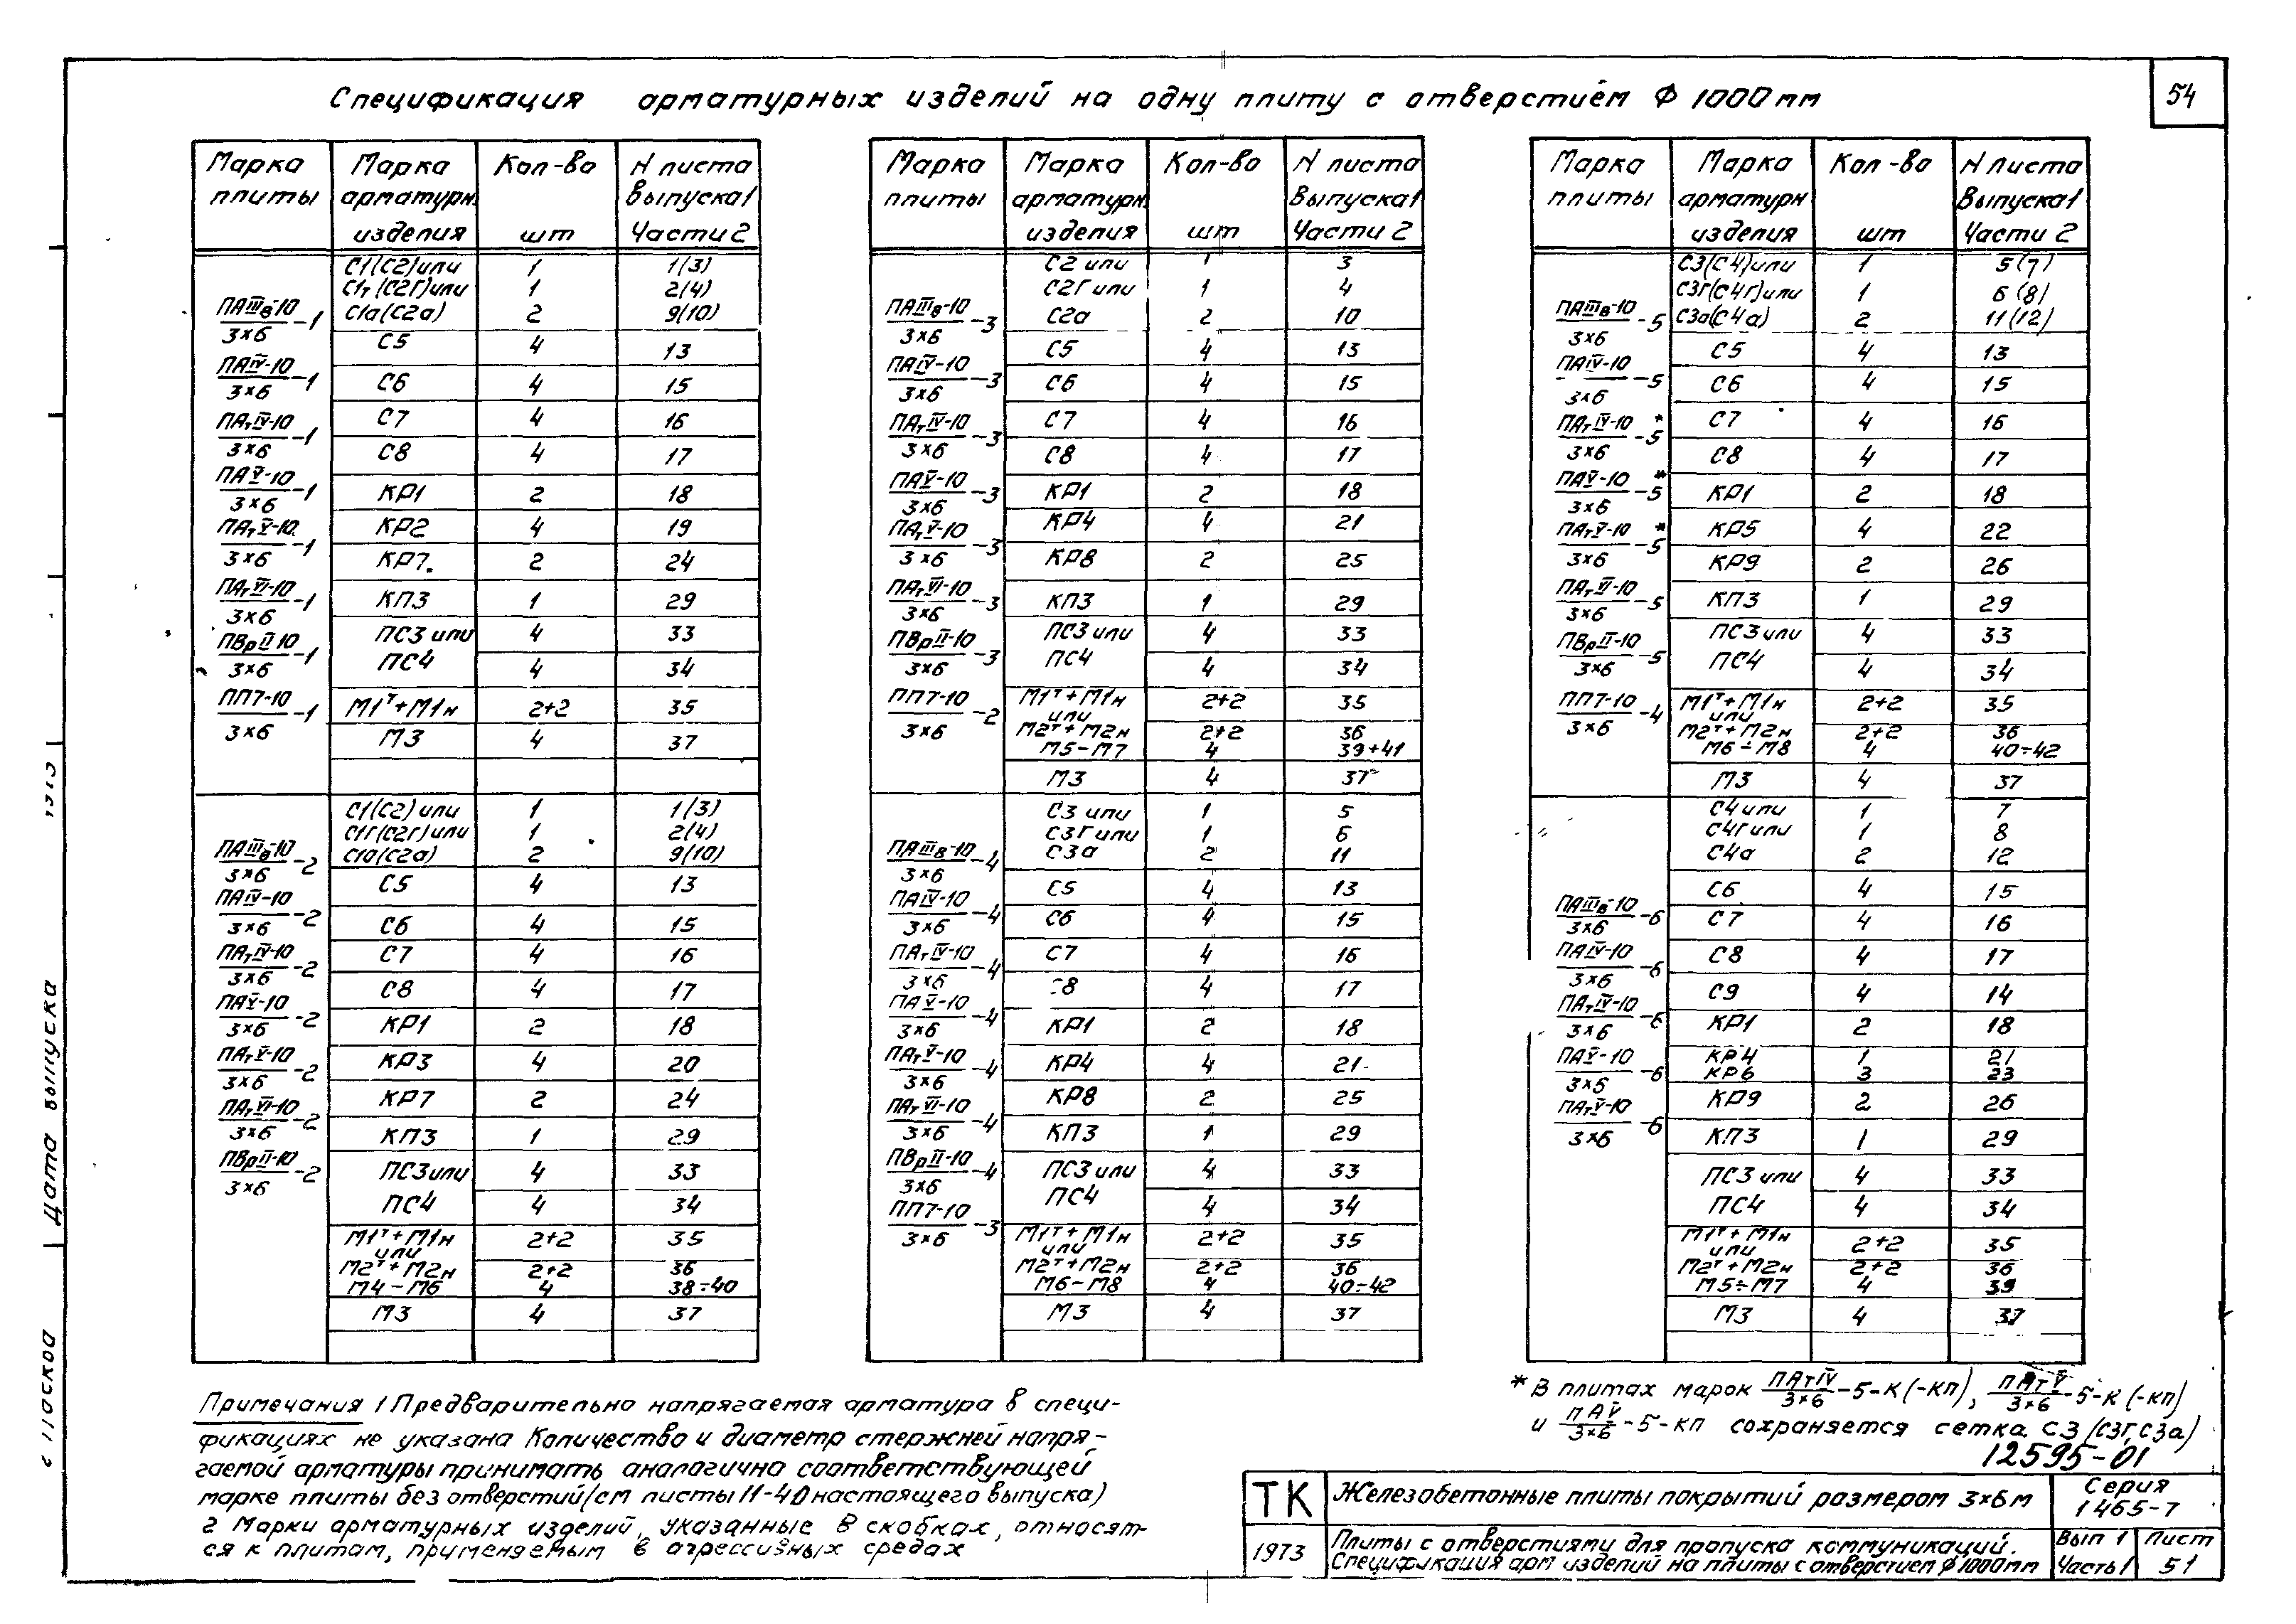 Спецификация арматурных изделий на одну плиту с отверстием Ф 1000 мм
54
Марка плиты | Марка арматурн. изделия | Кол-во шт | N листа Выпуска 1 Части 2
ПАIIIв-10/3×6-1
ПАIV-10/3×6-1
ПАтIV-10/3×6-1
ПАV-10/3×6-1
ПАтV-10/3×6-1
ПАтVI-10/3×6-1
ПВрII-10/3×6-1
ПП7-10/3×6-1
С1(С2) или 1 1(3)
С1т(С2Г) или 1 2(4)
С1а(С2а) 2 9(10)
С5 4 13
С6 4 15
С7 4 16
С8 4 17
КР1 2 18
КР2 4 19
КР7. 2 24
КП3 1 29
ПС3 или 4 33
ПС4 4 34
М1т+М1н 2+2 35
М3 4 37
ПАIIIв-10/3×6-2
ПАIV-10/3×6-2
ПАтIV-10/3×6-2
ПАV-10/3×6-2
ПАтV-10/3×6-2
ПАтVI-10/3×6-2
ПВрII-10/3×6-2
С1(С2) или 1 1(3)
С1Г(С2Г) или 1 2(4)
С1а(С2а) 2 9(10)
С5 4 13
С6 4 15
С7 4 16
С8 4 17
КР1 2 18
КР3 4 20
КР7 2 24
КП3 1 29
ПС3 или 4 33
ПС4 4 34
М1т+М1н 2+2 35
или
М2т+М2н 2+2 36
М4-М6 4 38÷40
М3 4 37
Марка плиты | Марка арматурн. изделия | Кол-во шт | N листа Выпуска 1 Части 2
ПАIIIв-10/3×6-3
ПАIV-10/3×6-3
ПАтIV-10/3×6-3
ПАV-10/3×6-3
ПАтV-10/3×6-3
ПАтVI-10/3×6-3
ПВрII-10/3×6-3
ПП7-10/3×6-2
С2 или 1 3
С2Г или 1 4
С2а 2 10
С5 4 13
С6 4 15
С7 4 16
С8 4 17
КР1 2 18
КР4 4 21
КР8 2 25
КП3 1 29
ПС3 или 4 33
ПС4 4 34
М1т+М1н 2+2 35
или
М2т+М2н 2+2 36
М5-М7 4 39+41
М3 4 37
ПАIIIв-10/3×6-4
ПАIV-10/3×6-4
ПАтIV-10/3×6-4
ПАV-10/3×6-4
ПАтV-10/3×6-4
ПАтVI-10/3×6-4
ПВрII-10/3×6-4
ПП7-10/3×6-3
С3 или 1 5
С3Г или 1 6
С3а 2 11
С5 4 13
С6 4 15
С7 4 16
С8 4 17
КР1 2 18
КР4 4 21
КР8 2 25
КП3 1 29
ПС3 или 4 33
ПС4 4 34
М1т+М1н 2+2 35
или
М2т+М2н 2+2 36
М6-М8 4 40÷42
М3 4 37
Марка плиты | Марка арматурн изделия | Кол-во шт | N листа Выпуска 1 Части 2
ПАIIIв-10/3×6-5
ПАIV-10/3×6-5
ПАтIV-10/3×6-5*
ПАV-10/3×6-5*
ПАтV-10/3×6-5*
ПАтVI-10/3×6-5
ПВрII-10/3×6-5
ПП7-10/3×6-4
С3(С4) или 1 5(7)
С3Г(С4Г) или 1 6(8)
С3а(С4а) 2 11(12)
С5 4 13
С6 4 15
С7 4 16
С8 4 17
КР1 2 18
КР5 4 22
КР9 2 26
КП3 1 29
ПС3 или 4 33
ПС4 4 34
М1т+М1н 2+2 35
или
М2т+М2н 2+2 36
М6÷М8 4 40÷42
М3 4 37
ПАIIIв-10/3×6-6
ПАIV-10/3×6-6
ПАтIV-10/3×6-6
ПАV-10/3×6-6
ПАтV-10/3×6-6
С4 или 1 7
С4Г или 1 8
С4а 2 12
С6 4 15
С7 4 16
С8 4 17
С9 4 14
КР1 2 18
КР4 1 21
КР6 3 23
КР9 2 26
КП3 1 29
ПС3 или 4 33
ПС4 4 34
М1т+М1н 2+2 35
или
М2т+М2н 2+2 36
М5÷М7 4 39
М3 4 37
Примечания 1 Предварительно напрягаемая арматура в специ-
фикациях не указана Количество и диаметр стержней напря-
гаемой арматуры принимать аналогично соответствующей
марке плиты без отверстий (см листы 11-40 настоящего выпуска)
2 Марки арматурных изделий, указанные в скобках, относят-
ся к плитам, применяемым в агрессивных средах
* В плитах марок ПАтIV/3×6-5-К(-КП), ПАтV/3×6-5-К(-КП)
и ПАV/3×6-5-КП сохраняется сетка С3 (С3Г, С3а)
12595-01
ТК
Железобетонные плиты покрытий размером 3×6 м
Серия
1465-7
1973
Плиты с отверстиями для пропуска коммуникаций.
Спецификация арм изделий на плиты с отверстием Ф 1000мм
Вып 1
Часть 1
Лист
51
Дата выпуска